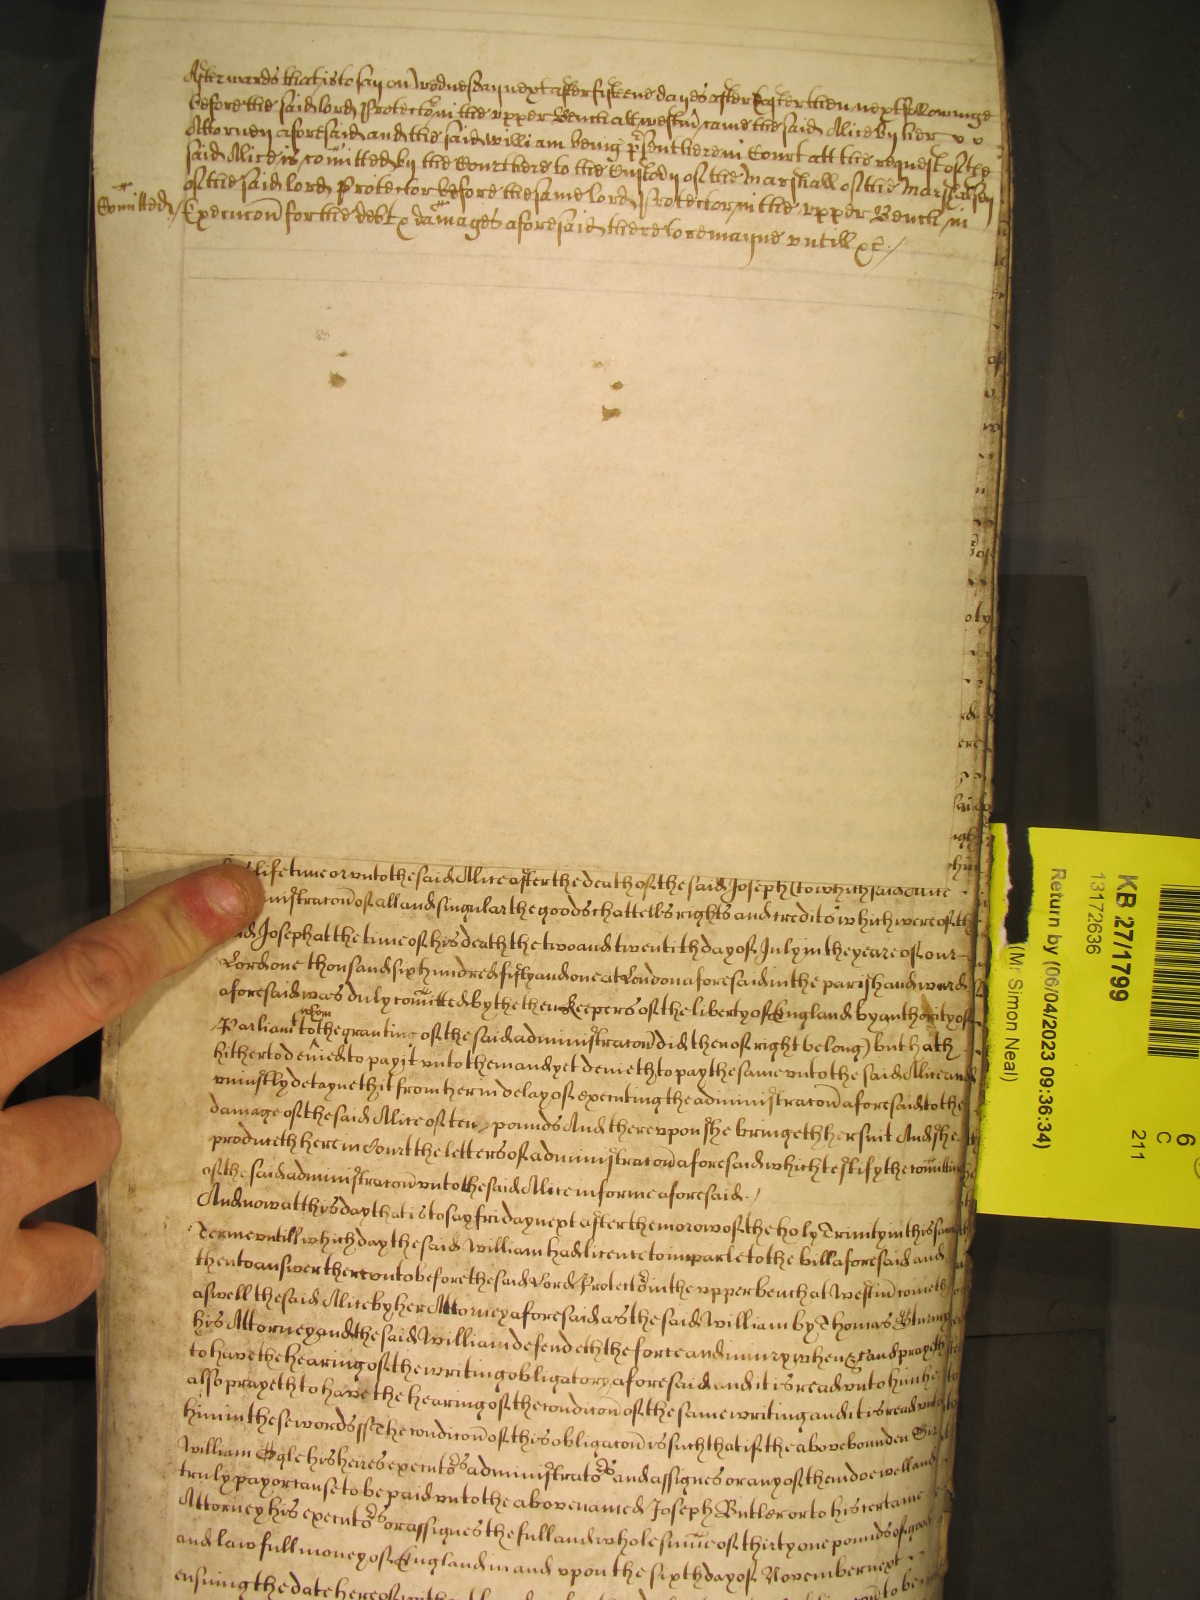 Afterwards that is to say on Wednesday next after fifteene dayes after Easter then next followinge
before the said lord Protector in the upper Bench att Westm̃ came the said Alice by her
Attorney aforesaid and the said William being p̃sent here in Court att the request of the
said Alice is com̃itted by the Court here to the Custody of the Marshall of the Marshalsey
of the said lord Protector before the same lord Protector in the upper Bench in
Com̃itted / Execucon̄ for the debt & dam̃ages aforesaid there to remayne untill &c̃. /
lifetime or unto the said Alice after the death of the said Joseph (to which said Alice
ministracon̄ of all and singular the goods chattells rights and credits which were of the
said Joseph at the time of his death the two and twentith day of July in the yeare of our
Lord one thousand six hundred fifty and one at London aforesaid in the parish and ward
aforesaid was duly com̃itted by the then Keepers of the liberty of England by authority of
Parliamt to whom the granting of the said administracon̄ did then of right belong) but hath
hitherto denied to pay it unto them and yet denieth to pay the same unto the said Alice and
uniustly detayneth it from her in delay of executing the administracon̄ aforesaid to the
damage of the said Alice of ten pounds And thereupon she bringeth her suit And she
produceth here in Court the letters of administracon̄ aforesaid which testify the com̃itting
of the said administracon̄ unto the said Alice in forme aforesaid. /
And now at this day that is to say friday next after the morow of the holy Trinity in this same
Terme untill which day the said William had licence to imparle to the bill aforesaid and
then to answer thereunto before the said Lord Protector in the upper bench at Westm̃ cometh
aswell the said Alice by her Attorney aforesaid as the said William by Thomas
his Attorney and the said William defendeth the force and iniury when &c and prayeth
to have the hearing of the writing obligatory aforesaid and it is read unto him he
also prayeth to have the hearing of the condicon̄ of the same writing and it is read unto
him in these words ss The condicon̄ of this obligacon̄ is such that if the above bounden Sir
William Ogle his heires executors administrators and assignes or any of them doe well and
truly pay or cause to be paid unto the above named Joseph Butler or to his certaine
Attorney his executors or assignes the full and whole sum̃e of thirty one pounds of good
and lawfull money of England in and upon the sixth day of November next
ensuing the date hereof to be
KB 27/1799
13172636
Return by (06/04/2023 09:36:34)
(Mr Simon Neal)
6
C
211